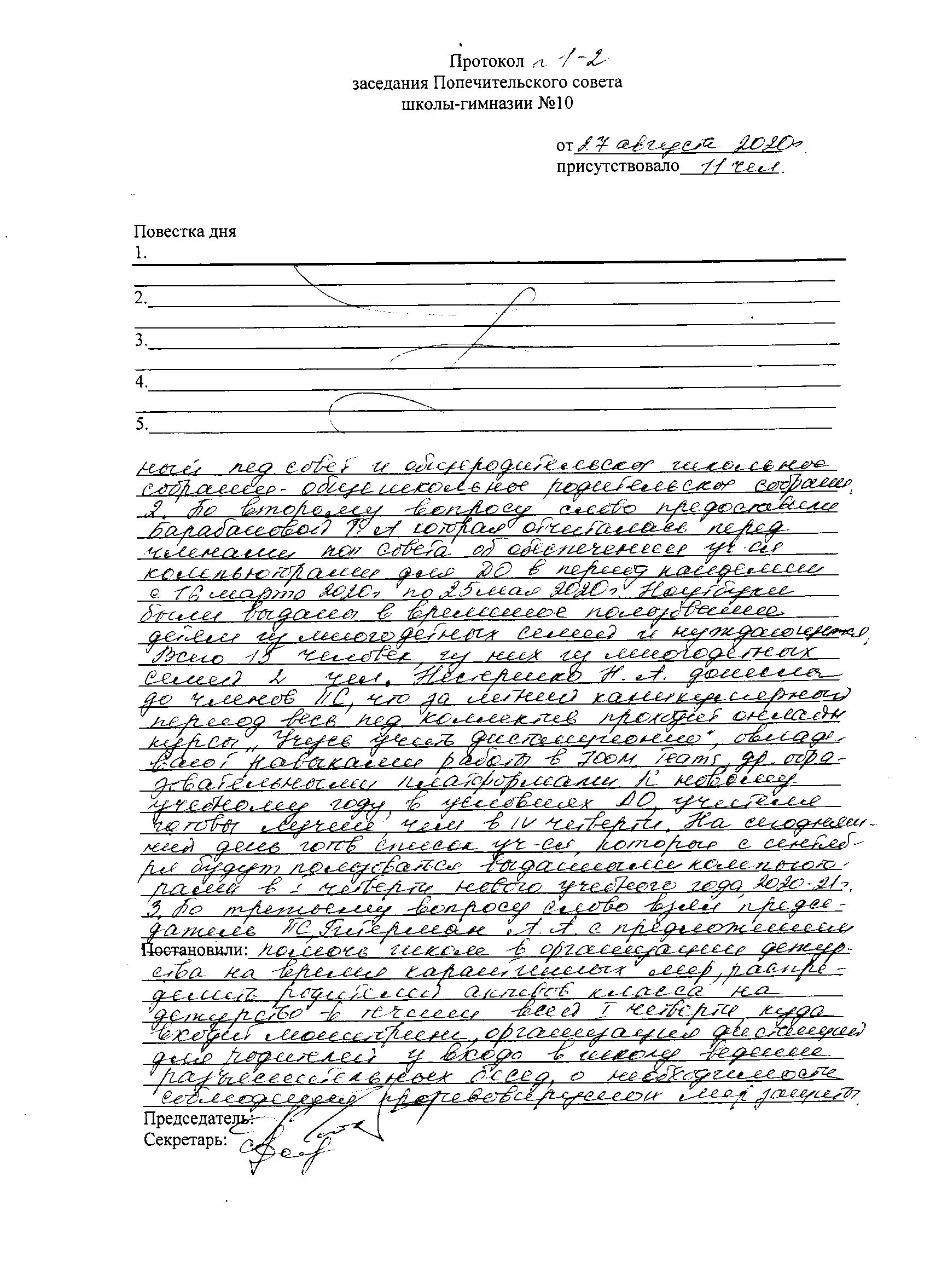 Протокол № 1-2
заседания Попечительского совета
школы-гимназии №10
от 27 августа 2020г.
присутствовало 11 чел.
Повестка дня
1.
2.
3.
4.
5.
ный пед совет и общеродительское школьное
собрание - общешкольное родительское собрание,
2. По второму вопросу слово предоставили
Барабановой Р. А которая отчиталась перед
членами поп совета об обеспечении уч-ся
компьютрами для ДО в период пандемии
с 16 марта 2020г по 25 мая 2020г. Ноутбуки
были выданы в временное пользование
детям из многодетных семей и нуждающихся,
Всего 15 человек из них из многодетных
семей 2 чел. Нестеренко Н. А. донесла
до членов ПС, что за летний каникулярный
период весь пед коллектив проходит онлайн
курсы „Учусь учить дистанционно“, овладе-
вают навыками работы в Zoom, Teams, др. обра-
довательными платформами К новому
учебному году в условиях ДО учителя
готовы лучше, чем в IV четверти. На сегодняш-
ний день готов список уч-ся, которые с сентяб-
ря будут пользоватся выданными компьюте-
рами в I четверти нового учебного года 2020-21г.
3. По третьему вопросу слово взял предсе-
датель ПС Гитерман А. А. с предложением
Постановили: помочь школе в организации дежур-
ства на время карантинных мер, распре-
делить родителей активов класса на
дежурство в течении всей I четверти куда
входит мониторинг, организация дистанций
для родителей у входа в школу ведение
разъяснительных бесед, о необходимости
соблюдения противовирусной мер защиты
Председатель:
Секретарь: